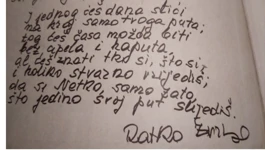 I jednog ćeš dana stići
na kraj samo tvoga puta;
tog ćeš časa možda biti
bez apela i kaputa
al ćeš znati tko si, što si
i koliko stvarno vrijediš;
da si Netko, samo zato
što jedino svoj put slijediš.
Ratko